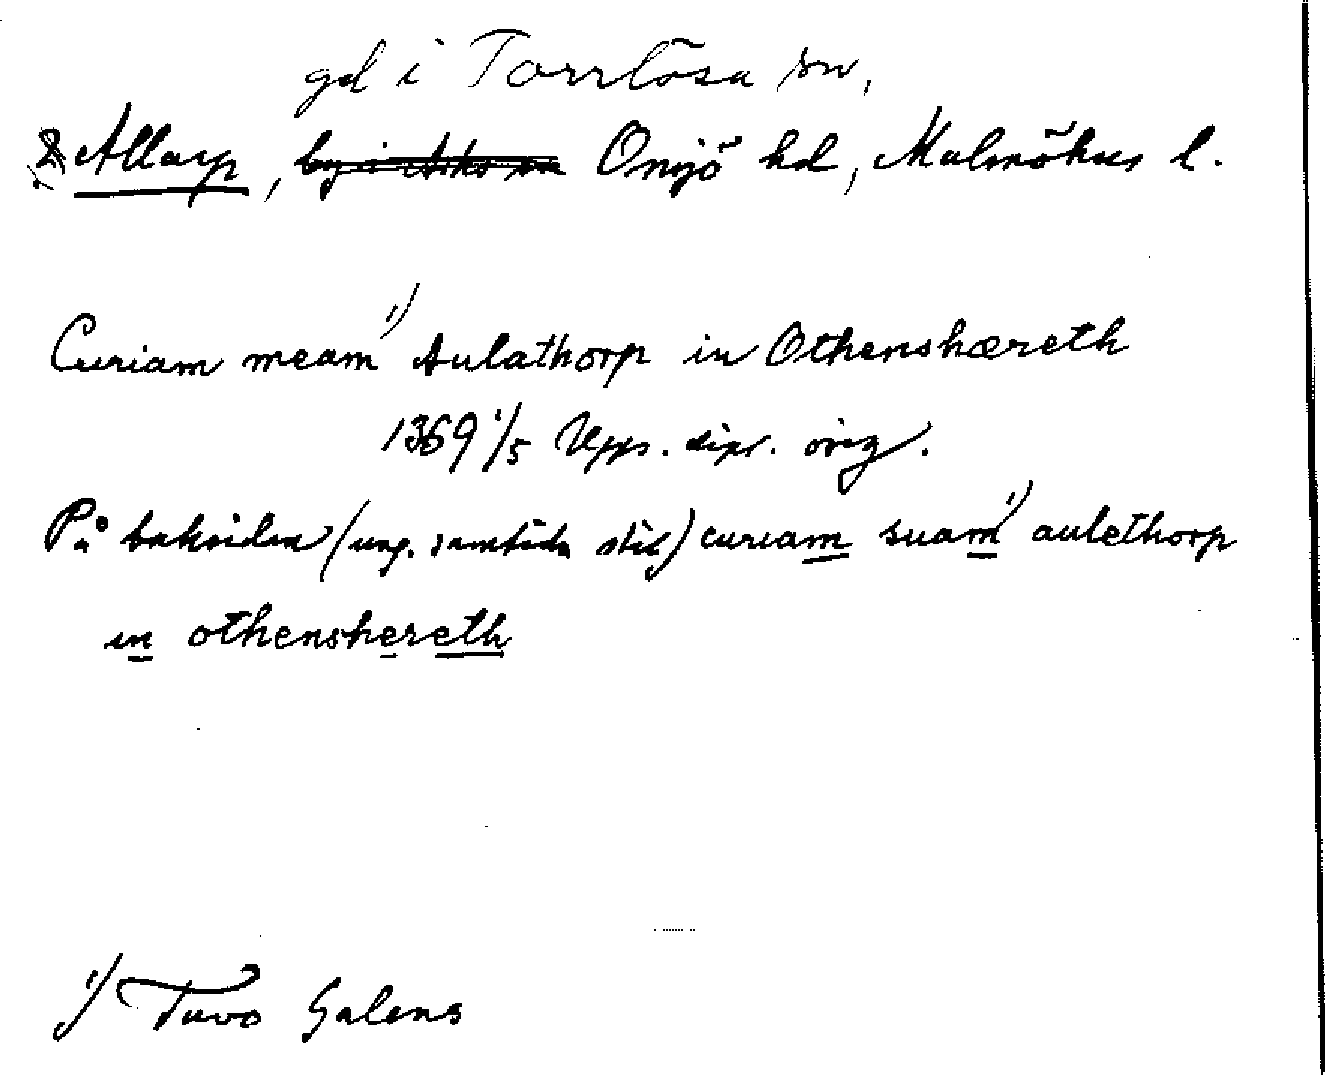 gd i Torrlösa sn,
2 Allarp, by i Asks sn Onsjö hd, Malmöhus l.
Curiam meam 1) Aulathorp in Othenshæreth
1369 1/5 Upps. dipl. orig.
På baksidan (ung. samtida stil) curiam suam 1) aulethorp
in othenshereth
1) Tuvo Galens